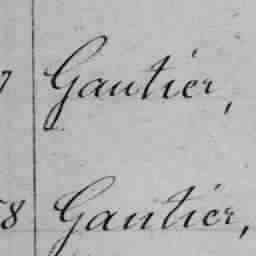 7 Gautier,
58 Gautier,